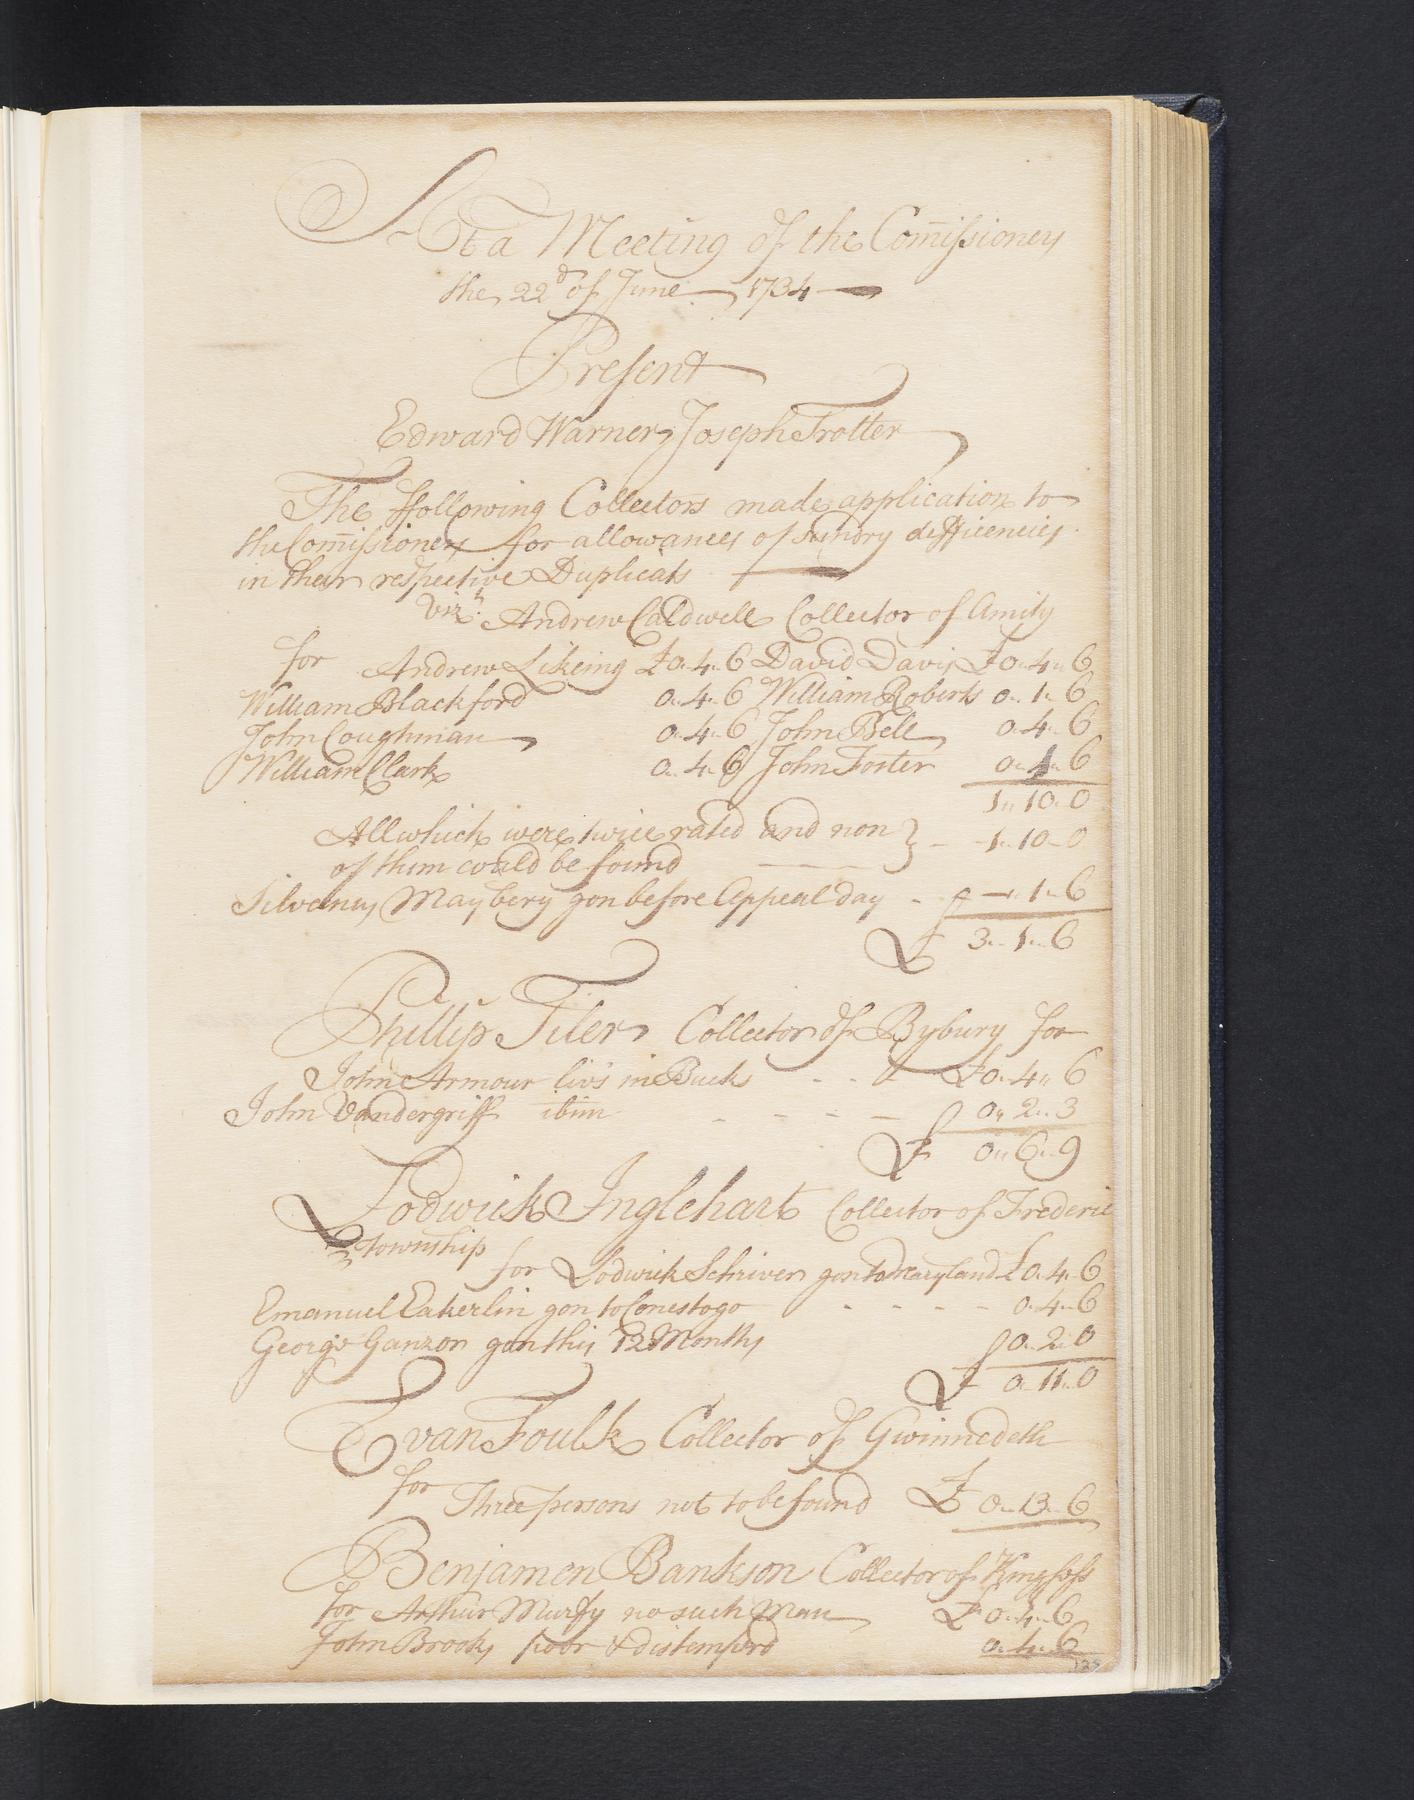 At a Meeting of the Com̄issioners
the 22d of June 1734
Present
Edward Warner, Joseph Trotter
The ffollowing Collectors made application to
the Com̄issioners for allowances of sundry defficencies
in their respective Duplicats
Vizt. Andrew Caldwell Collector of Amity
for Andrew Likeing £0. 4. 6 David Davis £0. 4. 6
William Blackford 0. 4. 6 William Roberts 0. 1. 6
John Coughman 0. 4. 6 John Bell 0. 4. 6
William Clark 0. 4. 6 John Foster 0. 1. 6
1. 10. 0
All which were twice rated and non } - 1. 10. 0
of them could be found
Silvanus Maybery gon before Appeal day - 1. 6
£ 3. 1. 6
Phillip Tiler Collector of Bybury for
John Armour livs in Bucks - - - £0. 4. 6
John Vandergriff ibim - - - - 0. 2. 3
£ 0. 6. 9
Lodwick Inglehart Collector of Frederic
township
for Lodwick Schriver gon to Maryland £0. 4. 6
Emanuel Eakerlin gon to Conestogo - - - - 0. 4. 6
George Ganzon gon this 12 Months 0. 2. 0
£ 0. 11. 0
Evan Foulk Collector of Gwinnedeth
for Three persons not to be found £ 0. 13. 6
Benjamen Bankson Collector of Kingsess
for Arthur Murfy no such Man £0. 4. 6
John Brooks poor & distemperd 0. 4. 6